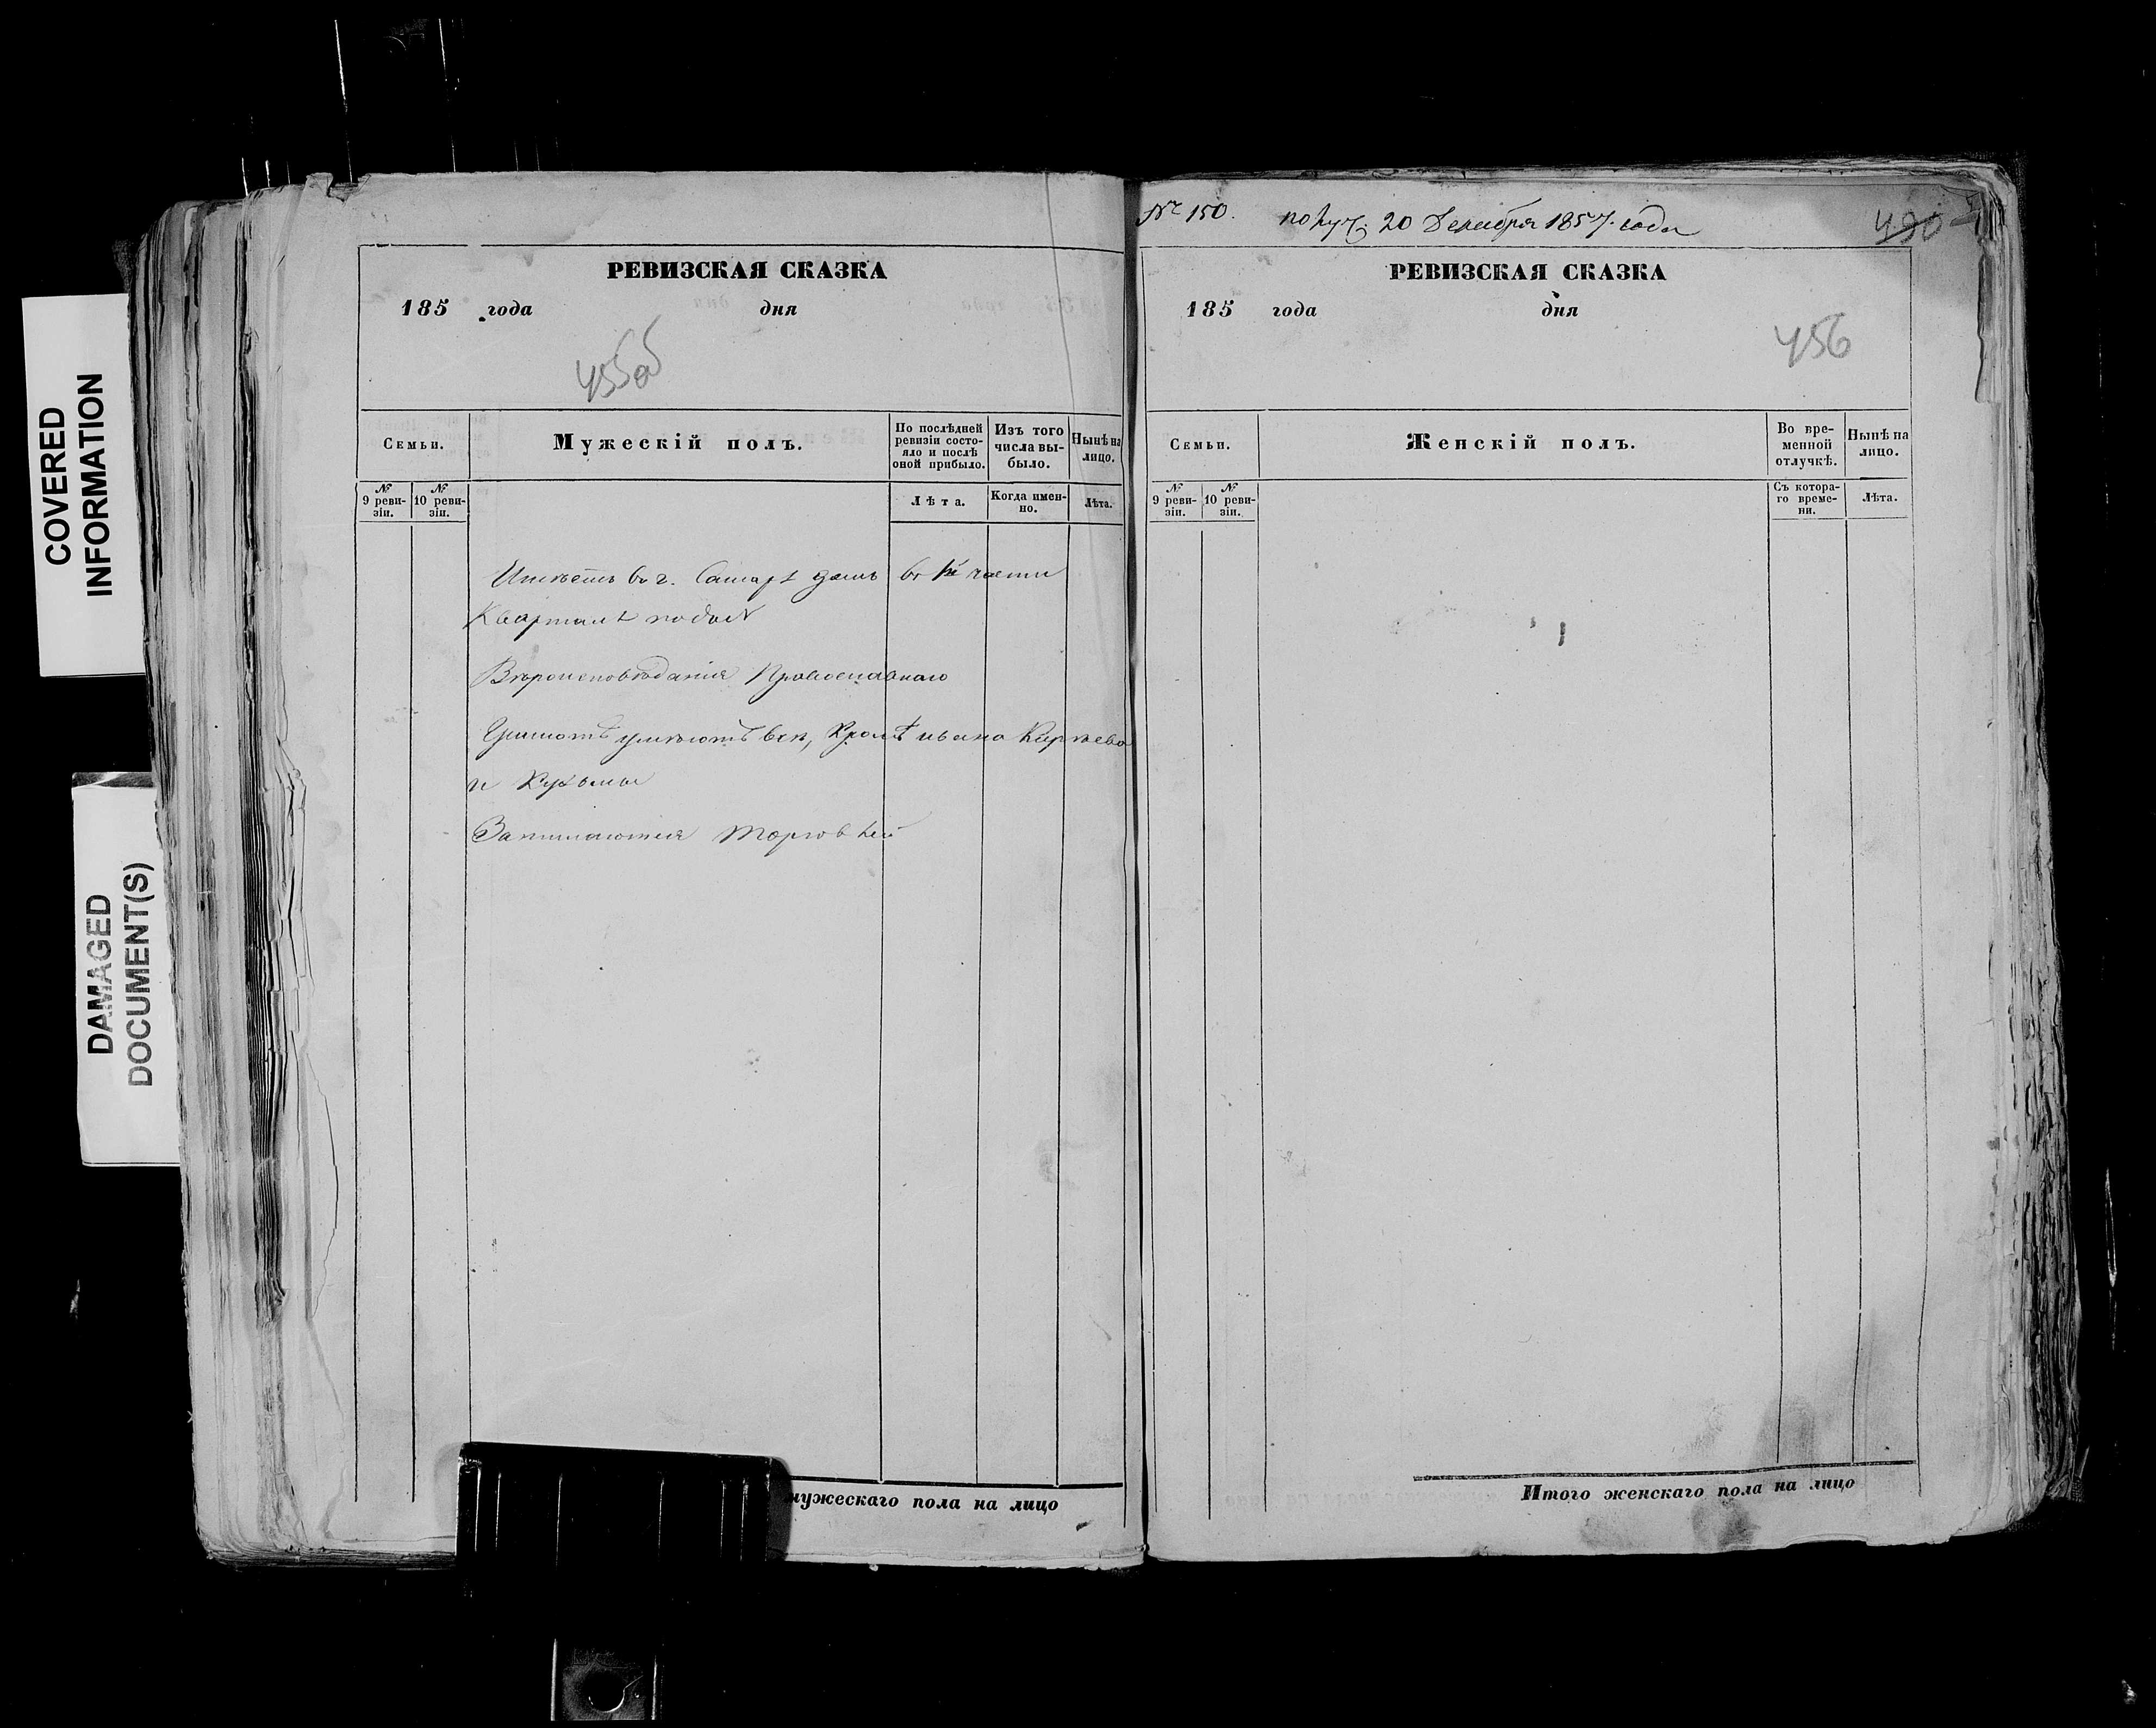 COVERED
INFORMATION
DAMAGED
DOCUMENT(S)
РЕВИЗСКАЯ СКАЗКА
185 года дня
455об
Семьи. Мужескій полъ. По послѣдней ревизіи состояло и послѣ оной прибыло. Изъ того числа выбыло. Нынѣ на лицо.
№ 9 ревизіи. № 10 ревизіи. Лѣта. Когда именно. Лѣта.
Имѣетъ въ г. Самарѣ домъ въ части
Кварталѣ подъ №
Вѣроисповѣданія Православнаго
Грамотѣ умѣютъ всѣ, Кромѣ ивана Киреева
и Кузьмы
Занимаются торговлей
мужескаго пола на лицо
№ 150. получ. 20 Декабря 1857. года
490
РЕВИЗСКАЯ СКАЗКА
185 года дня
456
Семьи. Женскій полъ. Во временной отлучкѣ. Нынѣ на лицо.
№ 9 ревизіи. № 10 ревизіи. Съ котораго времени. Лѣта.
Итого женскаго пола на лицо